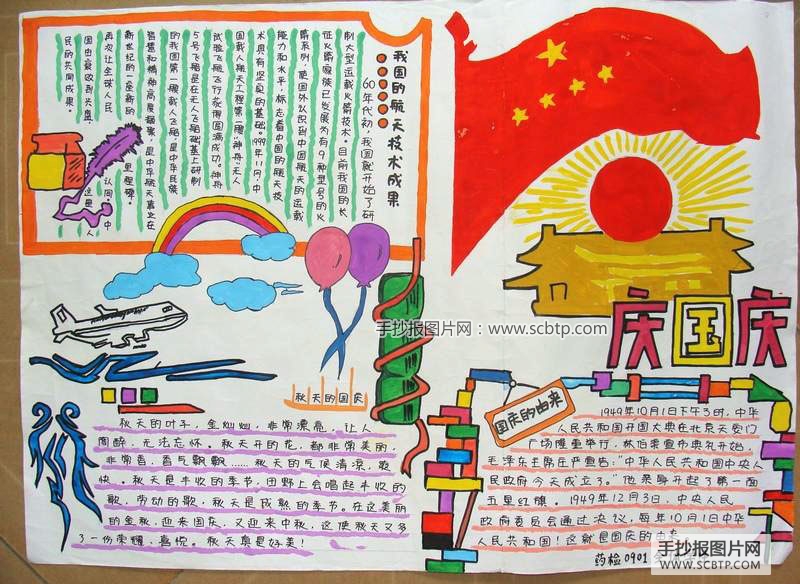 我国的航天技术成果
60年代初,我国就开始了研
制大型运载火箭技术。目前我国的长
征火箭家族已发展为有9种型号的火
箭系列,使国外认识到中国航天的运载
能力和水平,标志着中国的航天技
术具有坚实的基础。1999年11月,中
国载人航天工程第一艘“神舟”无人
试验飞船飞行获得圆满成功。神舟
5号飞船是在无人飞船基础上研制
的我国第一艘载人飞船,是中华民族
智慧和精神高度凝聚,是中华航天事业在
新世纪的一座新的 里程碑。
再次让全球人 认同,中
国由衰败到 这是 人
民的共同成果。
手抄报图片网:www.scbtp.com
庆国庆
秋天的国庆
秋天的叶子,金灿灿,非常漂亮,让人
陶醉,无法忘怀。秋天开的花,都非常美丽,
非常香,香气飘飘……秋天的气候清凉,爽
快。秋天是丰收的季节,田野上会唱起丰收的
歌,劳动的歌,秋天是成熟的季节。在这美丽
的金秋,迎来国庆,又迎来中秋,这使秋天又多
了一份荣耀,喜悦。秋天真是好美!
国庆的由来
1949年10月1日下午3时,中华
人民共和国开国大典在北京天安门
广场隆重举行,林伯渠宣布典礼开始,
毛泽东主席庄严宣告:“中华人民共和国中央人
民政府今天成立了。”他亲手升起了第一面
五星红旗。1949年12月3日,中央人民
政府委员会通过决议,每年10月1日中华
人民共和国!这就是国庆的由来
药检0901
手抄报图片网
WWW.SCBTP.COM